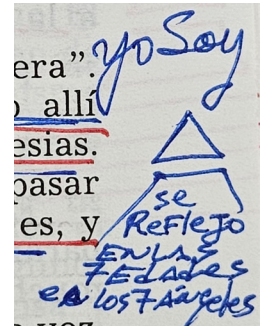 yo Soy
era".
o allí
esias.
pasar
es, y
se
REFLEJO
EN LAS
7 EDADES
en los 7 Ángeles